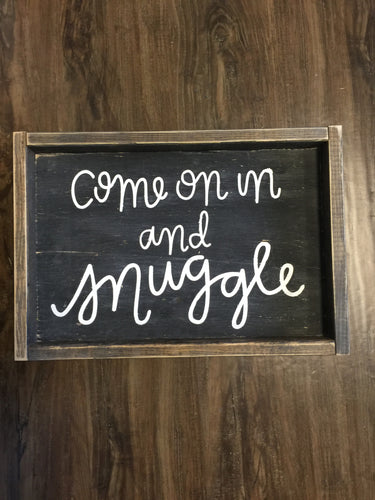 come on in
and
snuggle